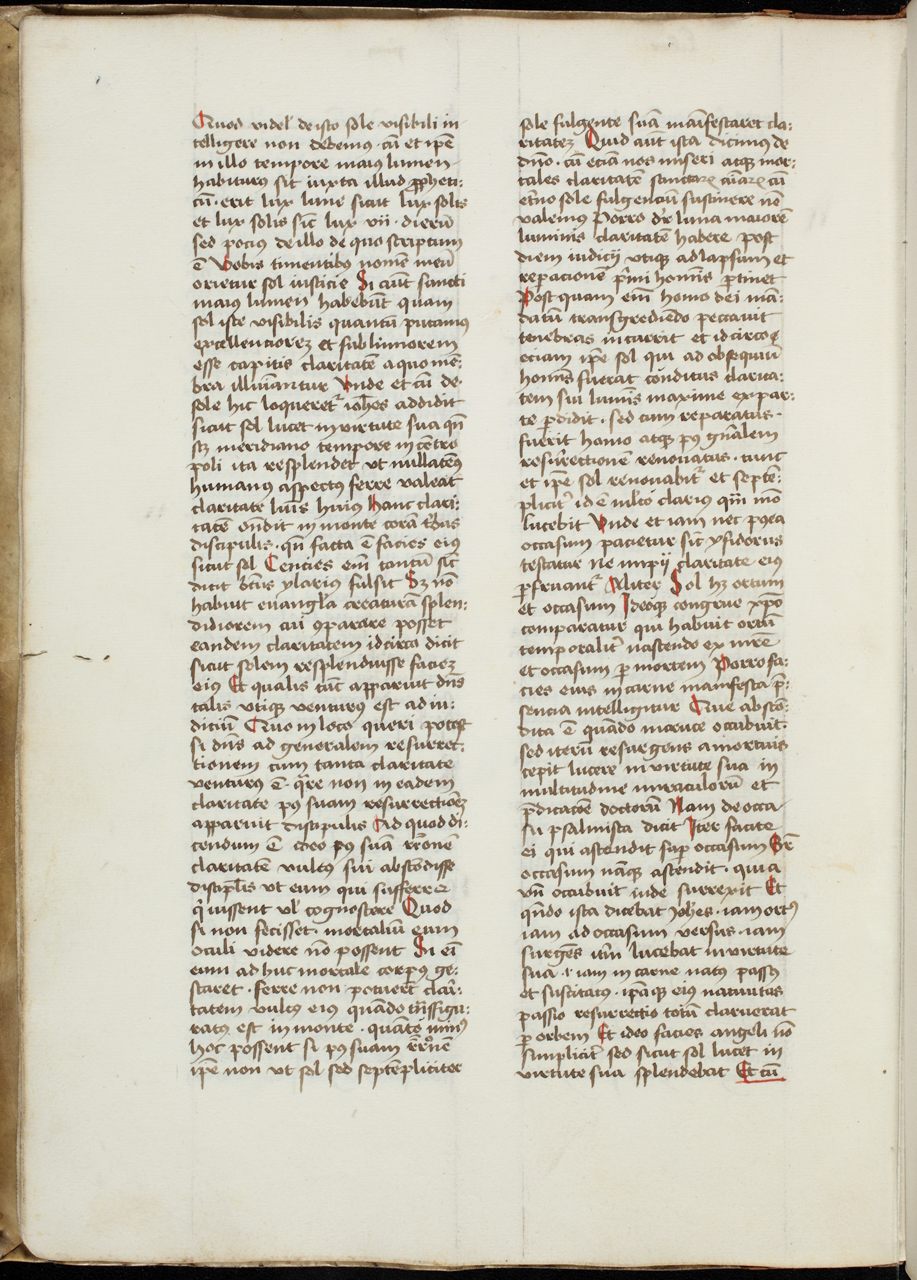 Quod videl' de isto sole visibili in
telligere non debemus · cū et ip̄e
in illo tempore maius lumen
habiturus sit iuxta illud ꝓpheti-
cū · erit lux lune sicut lux solis
et lux solis sic̄ lux vii · dierū
sed pocius de illo de quo scriptum
ē Vobis timentibus nomē meū
orietur sol iusticie Si aūt sancti
maius lumen habebūt quam
sol iste visibilis quantū putamus
excellentiorez et sublimiorem
esse capitis claritatē a quo mē-
bra illuīantur Vnde et cū de
sole hic loqueret̄ ioh̄es addidit
sicut sol lucet in virtute sua qn̄
sz meridiano tempore in cētro
poli ita resplendet vt nullatenꝰ
humanus aspectus ferre valeat
claritatē luīs huius Hanc clari-
tatē on̄dit in monte corā tribus
discipulis · qn̄ facta ē facies eiꝰ
sicut sol Cencies em̄ tantū sic̄
dicit bt̄us ylarius fulsit Sz nō
habuit euangl'a creaturā splen-
didiorem cui ꝯparare posset
eandem claritatem idcirco dicit
sicut solem resplenduisse faciez
eiꝰ Et qualis tūc apparuit dn̄s
talis vtiqꝫ venturus est ad iu-
diciū Quo in loco queri potest
si dn̄s ad generalem resurrec-
tionem cum tanta claritate
venturus ē · qͣre non in eadem
claritate pꝰ suam resurrectionez
apparuit discipulis Ad quod di-
cendum ē eo pꝰ suā rr̄onē
claritatē vultus sui abscōdisse
discipl̄is vt eum qui sufferre
qͥuissent vl' cognoscere Quod
si non fecisset · mortaliū eum
oculi videre nō possent Si eī
eum adhuc mortale corpus ge-
staret · ferre non potuerēt clari-
tatem vultus eiꝰ quādo trāsfigu-
ratus est in monte · quāto minꝰ
hoc possent si pꝰ suam rr̄onē
ip̄e non vt sol sed septempliciter
sole fulgente suā maīfestaret cla-
ritatez Quid aūt ista dicimus de
dn̄o · cū eciā nos miseri atqꝫ mor-
tales claritatē sanctarꝫ aīarꝫ cū
et̄no sole fulgenciū sustinere nō
valemus Porro dr̄ luna maiorē
luminis claritatē habere post
diem iudicii vtiqꝫ ad lapsum et
reꝑacionē pͥmi hoīs ꝑtinet
Postquam em̄ homo dei man-
datū transgrediēdo peccauit
tenebras incurrit et idcirco
eciam ip̄e sol qui ad obsequiū
homīs fuerat conditus clarita-
tem sui luminis maxime ex par-
te ꝑdidit · sed cum reparatus
fuerit homo atqꝫ pꝰ gn̄alem
resurrectionē renouatus · tunc
et ip̄e sol renouabit̄ et septē-
plicit̄ id ē ml̄to clarius qͣm mō
lucebit Vnde et iam nec postea
occasum pacietur sic̄ ysidorus
testatur ne impij claritate eiꝰ
ꝑfruant̄ Aliter Sol hꝫ ortum
et occasum Ideoqꝫ congrue xp̄o
comparatur qui habuit ortū
temporalit̄ nascendo ex mr̄e
et occasum ꝑ mortem Porro fa-
cies eius in carne manifesta pͣ-
sencia intelligitur Que abscō-
dita ē quādo in cruce occubuit
sed iterū resurgens a mortuis
cepit lucere in virtute sua in
multitudine miraculorū et
p̄dicatōe doctorū Nam de occa-
su psalmista dicit Iter facite
ei qui ascendit suꝑ occasum Sr̄
occasum nāqꝫ ascendit · quia
vn̄ occubuit inde surrexit Et
qn̄do ista dicebat Ioh̄es · iam ortꝰ
iam ad occasum versus · iam
surgēs itm̄ lucebat in virtute
sua · i · iam in carne natus passꝰ
et suscitatus · ip̄aqꝫ eiꝰ natiuitas
passio resurrectio totū claruerat
ꝑ orbem Et ideo facies angeli nō
simplicit̄ sed sicut sol lucet in
virtute sua splendebat Et cū